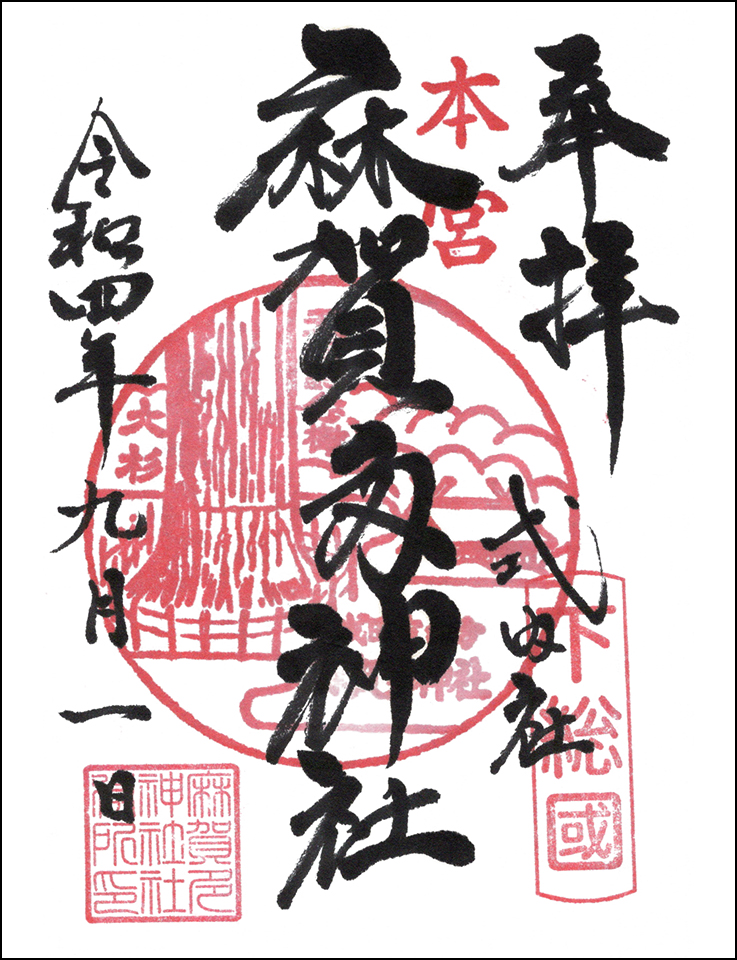 奉拝
式内社
下総國
本宮
麻賀多神社
大杉
令和四年九月一日
麻賀多
神社社
務所印